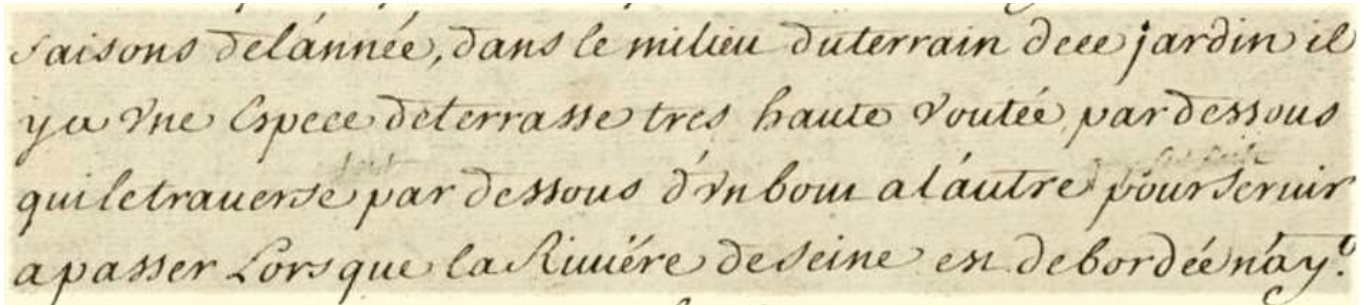 saisons de lánnée, dans le milieu du terrain de ce jardin il
ya vne Espece de terrasse tres haute voutée par dessous
qui le trauerse par dessous d'vn bout a láutre pour seruir
a passer Lors que la Riuiére de seine est debordée n'ay.^t